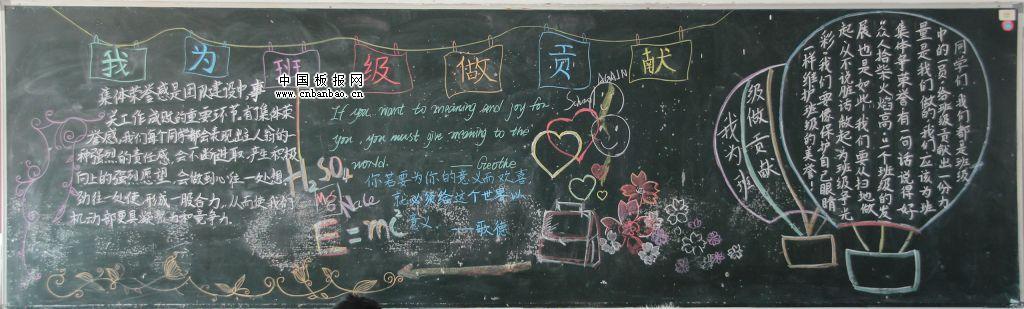 我为班级做贡献
中国板报网
www.cnbanbao.cn
集体荣誉感是团队建设中,事
关工作成败的重要环节,有集体荣
誉感,我们每个同学都会表现出主人翁的一
种强烈的责任感,会不断进取,产生积极
向上的强烈愿望,会做到心往一处想,
劲往一处使,形成一股合力,从而使我们
机动都更具凝聚力和竞争力
If you want to meaning and joy for
you, you must give meaning to the
world.
—— Geothe
你若要为你的意义而欢喜,
就必须给这个世界以
意义。
——歌德
H₂SO₄
Mg
Nale
E=mc²
AGAIN
我为班
级做贡献
同学们,我们都是班级
中的一员,给班级贡献出一份力
量是我们应该做的,我们应该为班
集体争荣誉,有一句话说得好
"众人拾柴火焰高",一个班级的发
展也是如此,我们要从扫地做
起,从不说脏话做起,为班级争光
彩,我们要像保护自己眼睛
一样维护班级的美誉!